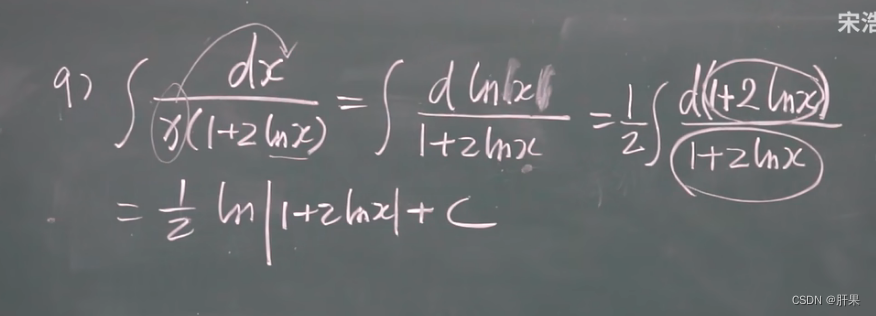 宋浩
9) ∫ dx / x(1+2lnx) = ∫ d ln|x| / 1+2lnx = 1/2 ∫ d(1+2lnx) / 1+2lnx
= 1/2 ln|1+2lnx| + C
CSDN @肝果